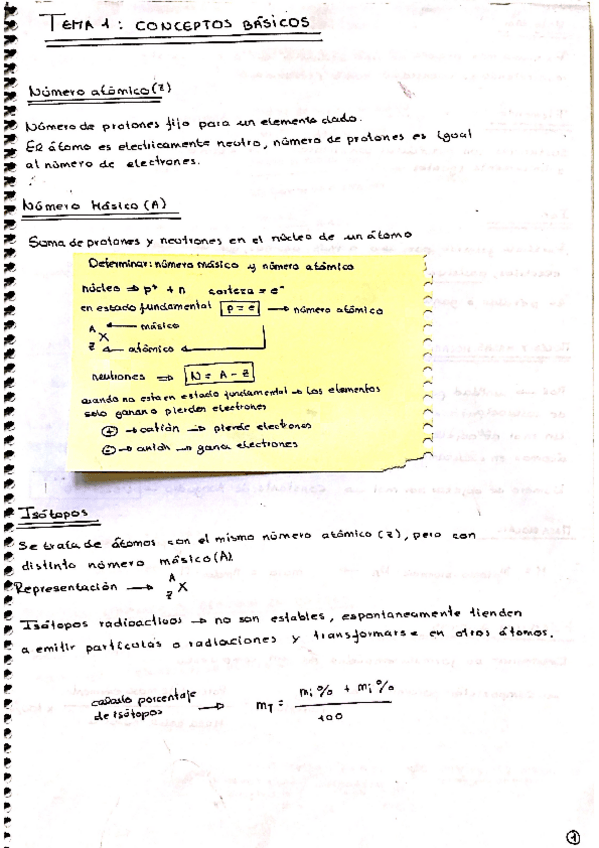 TEMA 1: CONCEPTOS BÁSICOS
Número atómico (Z)
Número de protones fijo para un elemento dado.
El átomo es electricamente neutro, número de protones es igual
al número de electrones.
Número Másico (A)
Suma de protones y neutrones en el núcleo de un átomo
Determinar: número másico y número atómico
núcleo ⇒ p⁺ + n corteza = e⁻
en estado fundamental p = e → número atómico
A ← másico
X
Z ← atómico ←
neutrones ⇒ N = A - Z
cuando no esta en estado fundamental → los elementos
solo ganan o pierden electrones
⊕ → catión → pierde electrones
⊖ → anión → gana electrones
Isótopos
Se trata de átomos con el mismo número atómico (Z), pero con
distinto número másico (A).
Representación → ᴬ_Z X
Isótopos radioactivos → no son estables, espontaneamente tienden
a emitir partículas o radiaciones y transformarse en otros átomos.
calculo porcentaje
de isótopos → m_T = (m_i % + m_i %) / 100
1